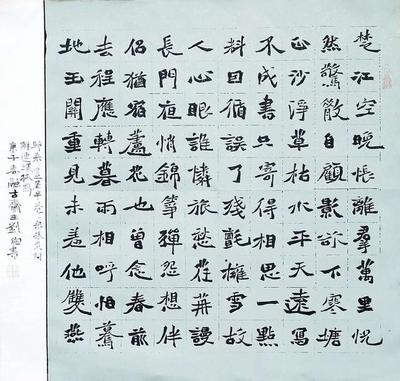 楚江空晚悵離羣萬里恍
然驚散自顧影欲下寒塘
正沙淨草枯水平天遠寫
不成書只寄得相思一點
料因循誤了殘氈擁雪故
人心眼誰憐旅愁荏苒謾
長門夜悄錦箏彈怨想伴
侶猶宿蘆花也曾念春前
去程應轉暮雨相呼怕驀
地玉關重見未羞他雙燕
歸來畫簾半卷 張炎詞
解連環孤雁
庚子春 劉 書